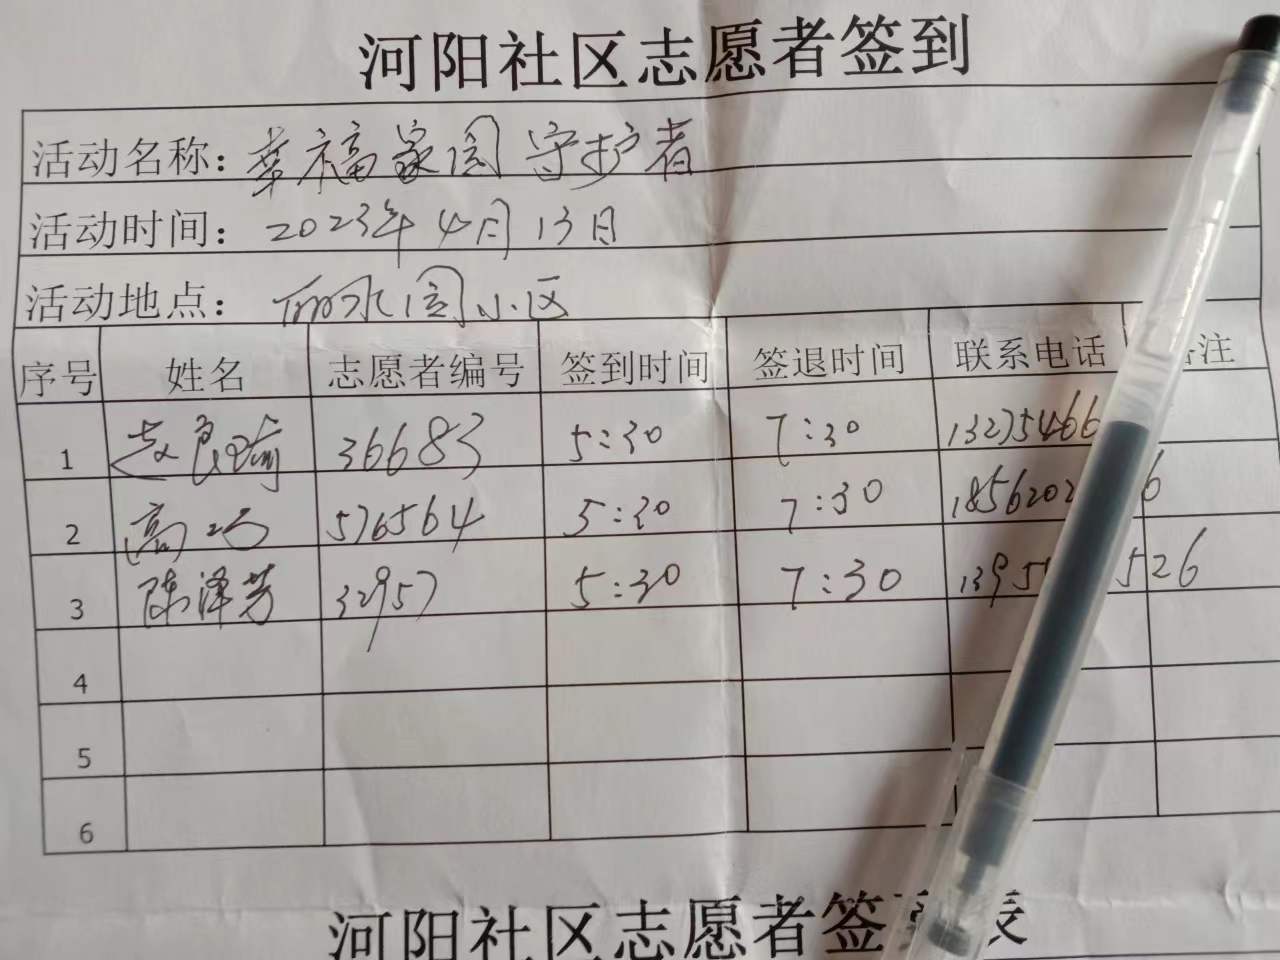 河阳社区志愿者签到
活动名称：幸福家园守护者
活动时间：2023年4月13日
活动地点：丽水园小区
序号 姓名 志愿者编号 签到时间 签退时间 联系电话 备注
1 赵良瑜 36683 5:30 7:30 13275466
2 高巧 576564 5:30 7:30 1856202 6
3 陈泽芳 32957 5:30 7:30 1395 526
4
5
6
河阳社区志愿者签到表